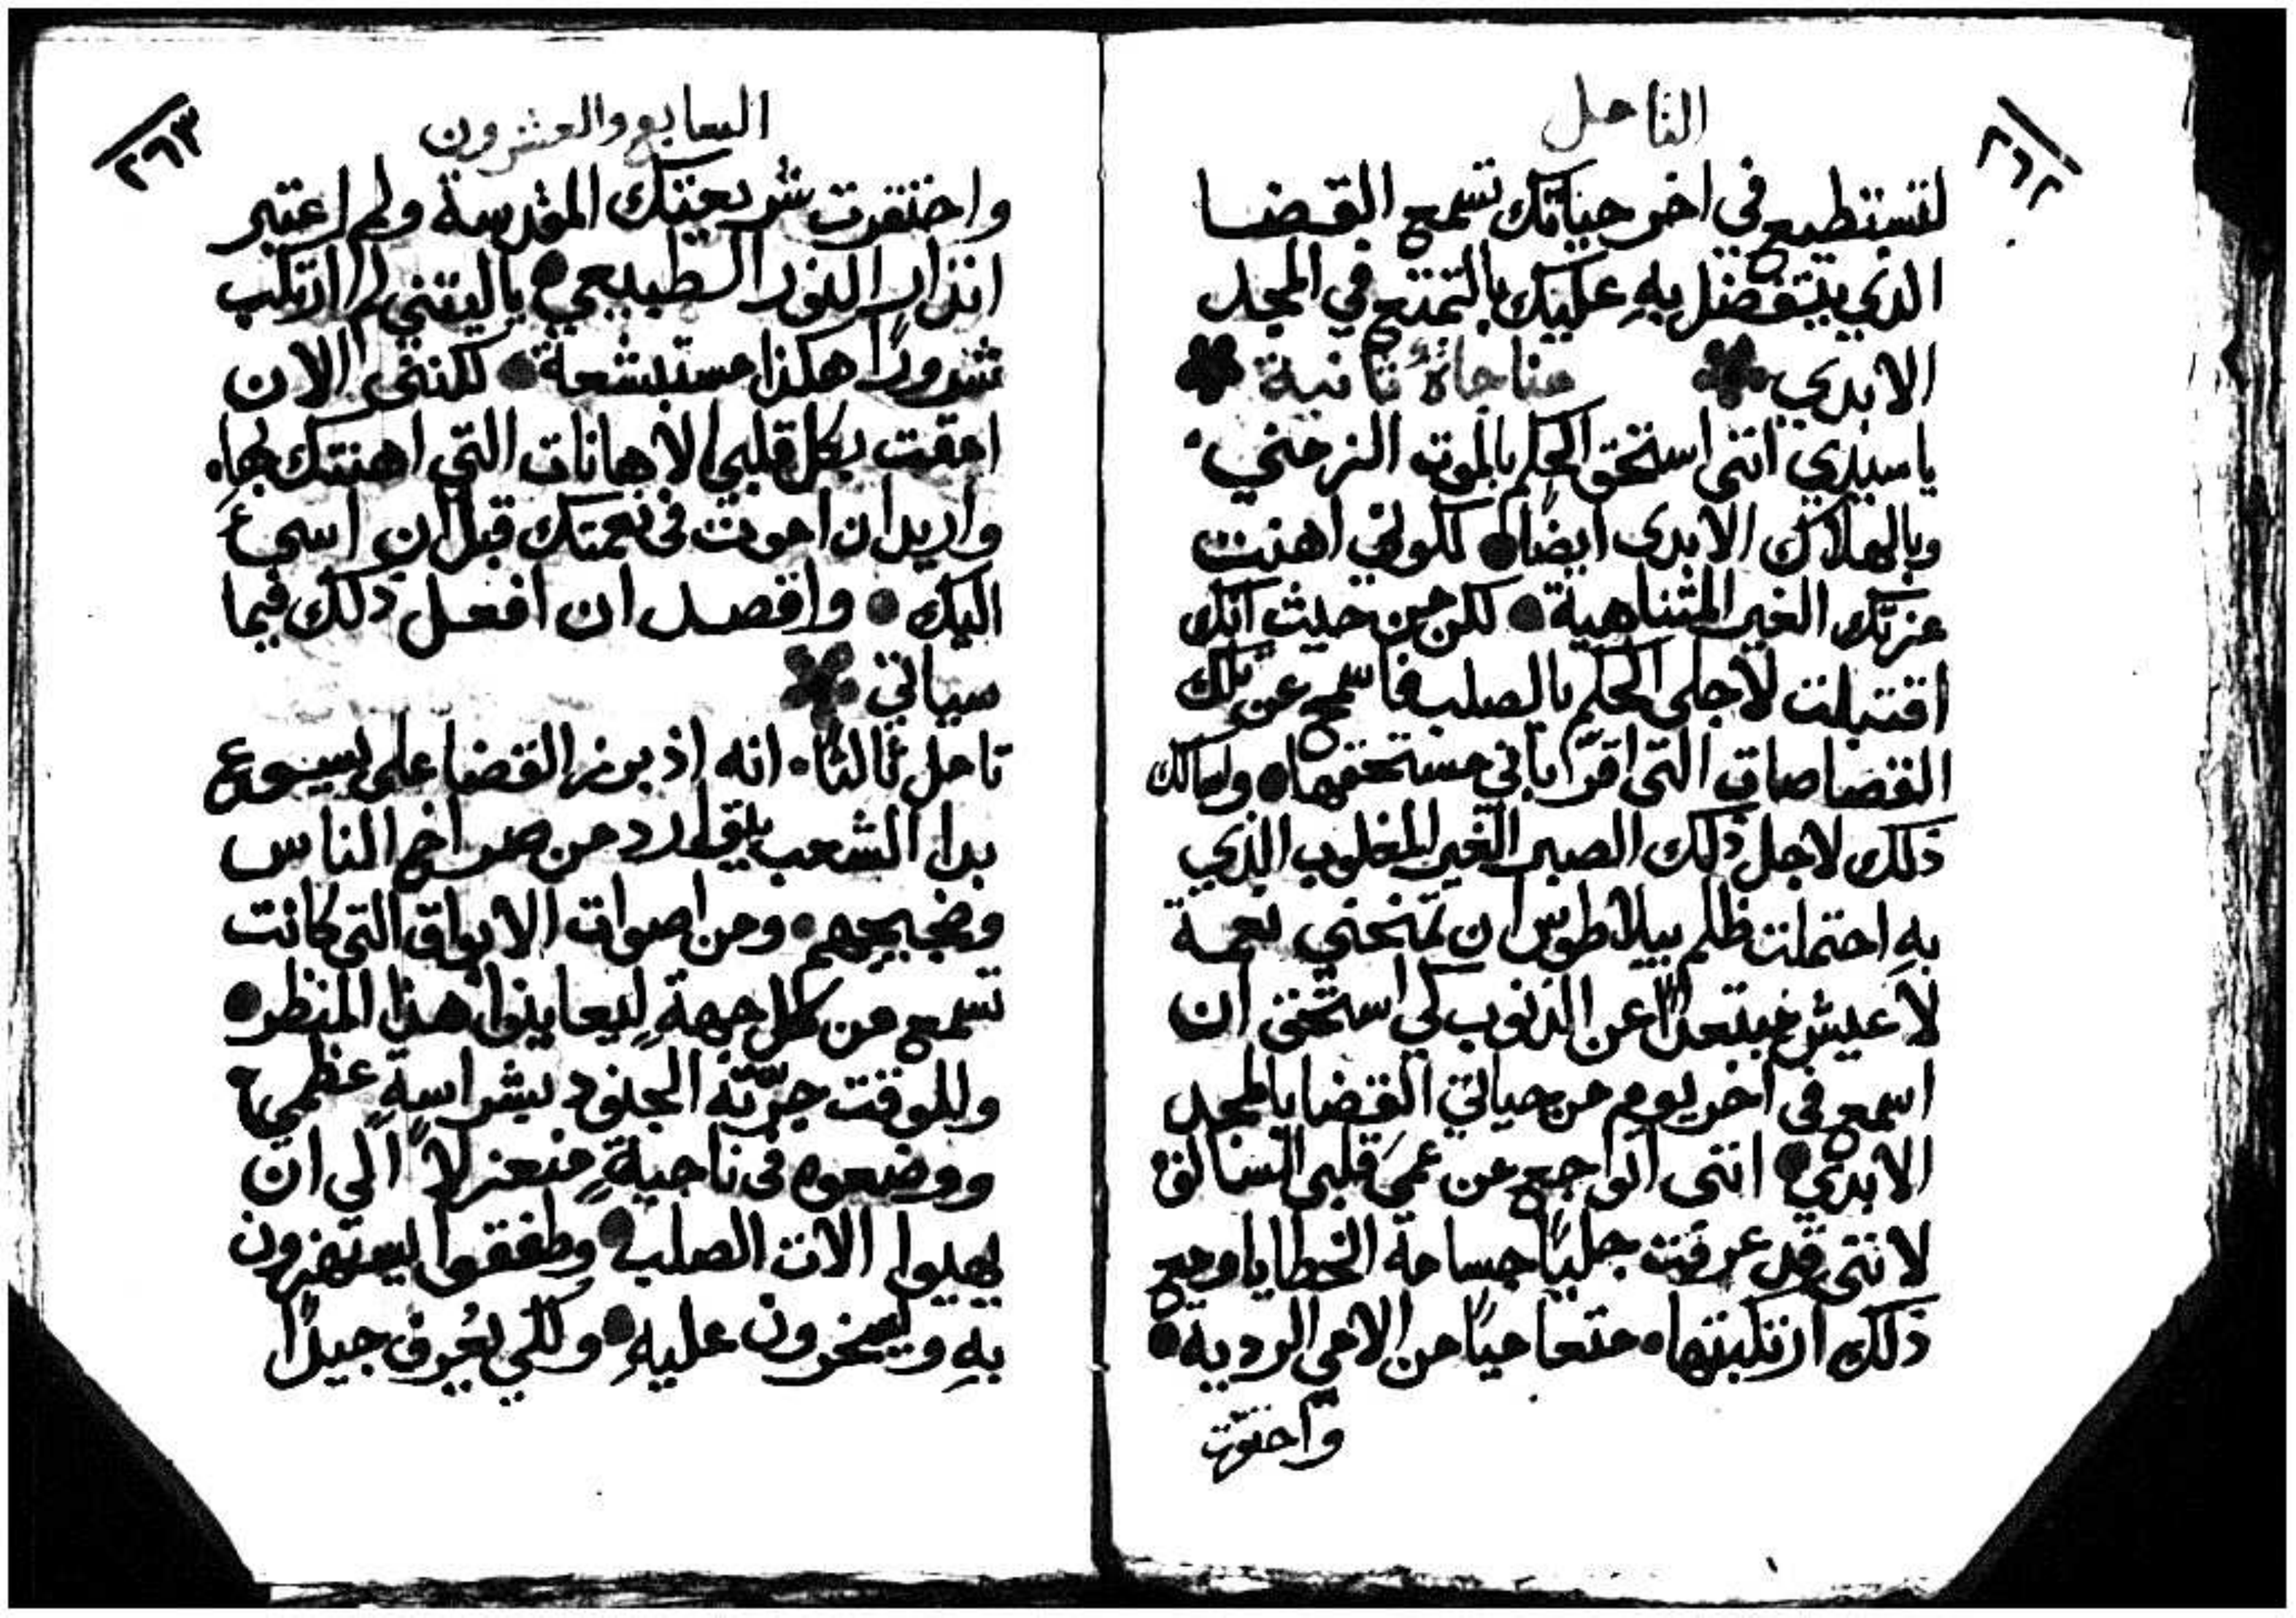 التامل
٢٦٢
لتستطيع في اخر حياتك تسمع القضا
الذي يتفضل بهِ عليك بالتمتع في المجد
الابدي مناجاةٌ ثانية
يا سيدي انني استحق الحكم بالموت الزمني
وبالهلاك الابدي ايضًا لكوني اهنت
عزتك الغير المتناهية لكن من حيث انك
اقتبلت لاجلي الحكم بالصلب فاسمح عن تلك
القصاصات التي اقرّ باني مستحقها واسالك
ذلك لاجل ذلك الصبر الغير المغلوب الذي
بهِ احتملت ظلم بيلاطوس ان تمنحني نعمة
لاعيش مبتعدًا عن الذنوب لكي استحق ان
اسمع في اخر يوم من حياتي القضا بالمجد
الابدي انني اتوجع من عمق قلبي السالف
لانني قد عرفت جليًا جسامة الخطايا ومع
ذلك ارتكبتها متعاميًا من الامي الردية
واحتقرت
السابع والعشرون
٢٦٣
واحتقرت شريعتك المقدسة ولم اعتبر
انذار النور الطبيعي ياليتني لم ارتكب
شرورًا هكذا مستبشعة لكنني الان
امقت بكل قلبي الاهانات التي اهنتك بها
واريد ان اموت في نعمتك قبل ان اسيءَ
اليك واقصد ان افعل ذلك فيما
سياتي
تامل ثالثًا انه اذ برز القضا على يسوع
بدا الشعب يتوارد من صراخ الناس
وضجيجهم ومن اصوات الابواق التي كانت
تسمع من كل جهةٍ ليعاينوا هذا المنظر
وللوقت جرّته الجنود بشراسةٍ عظمي
ووضعوه في ناحيةٍ منعزلاً الي ان
يهيوا الات الصلب وطفقوا يستهزون
بهِ ويسخرون عليهِ ولكي يُعرف جيدًا